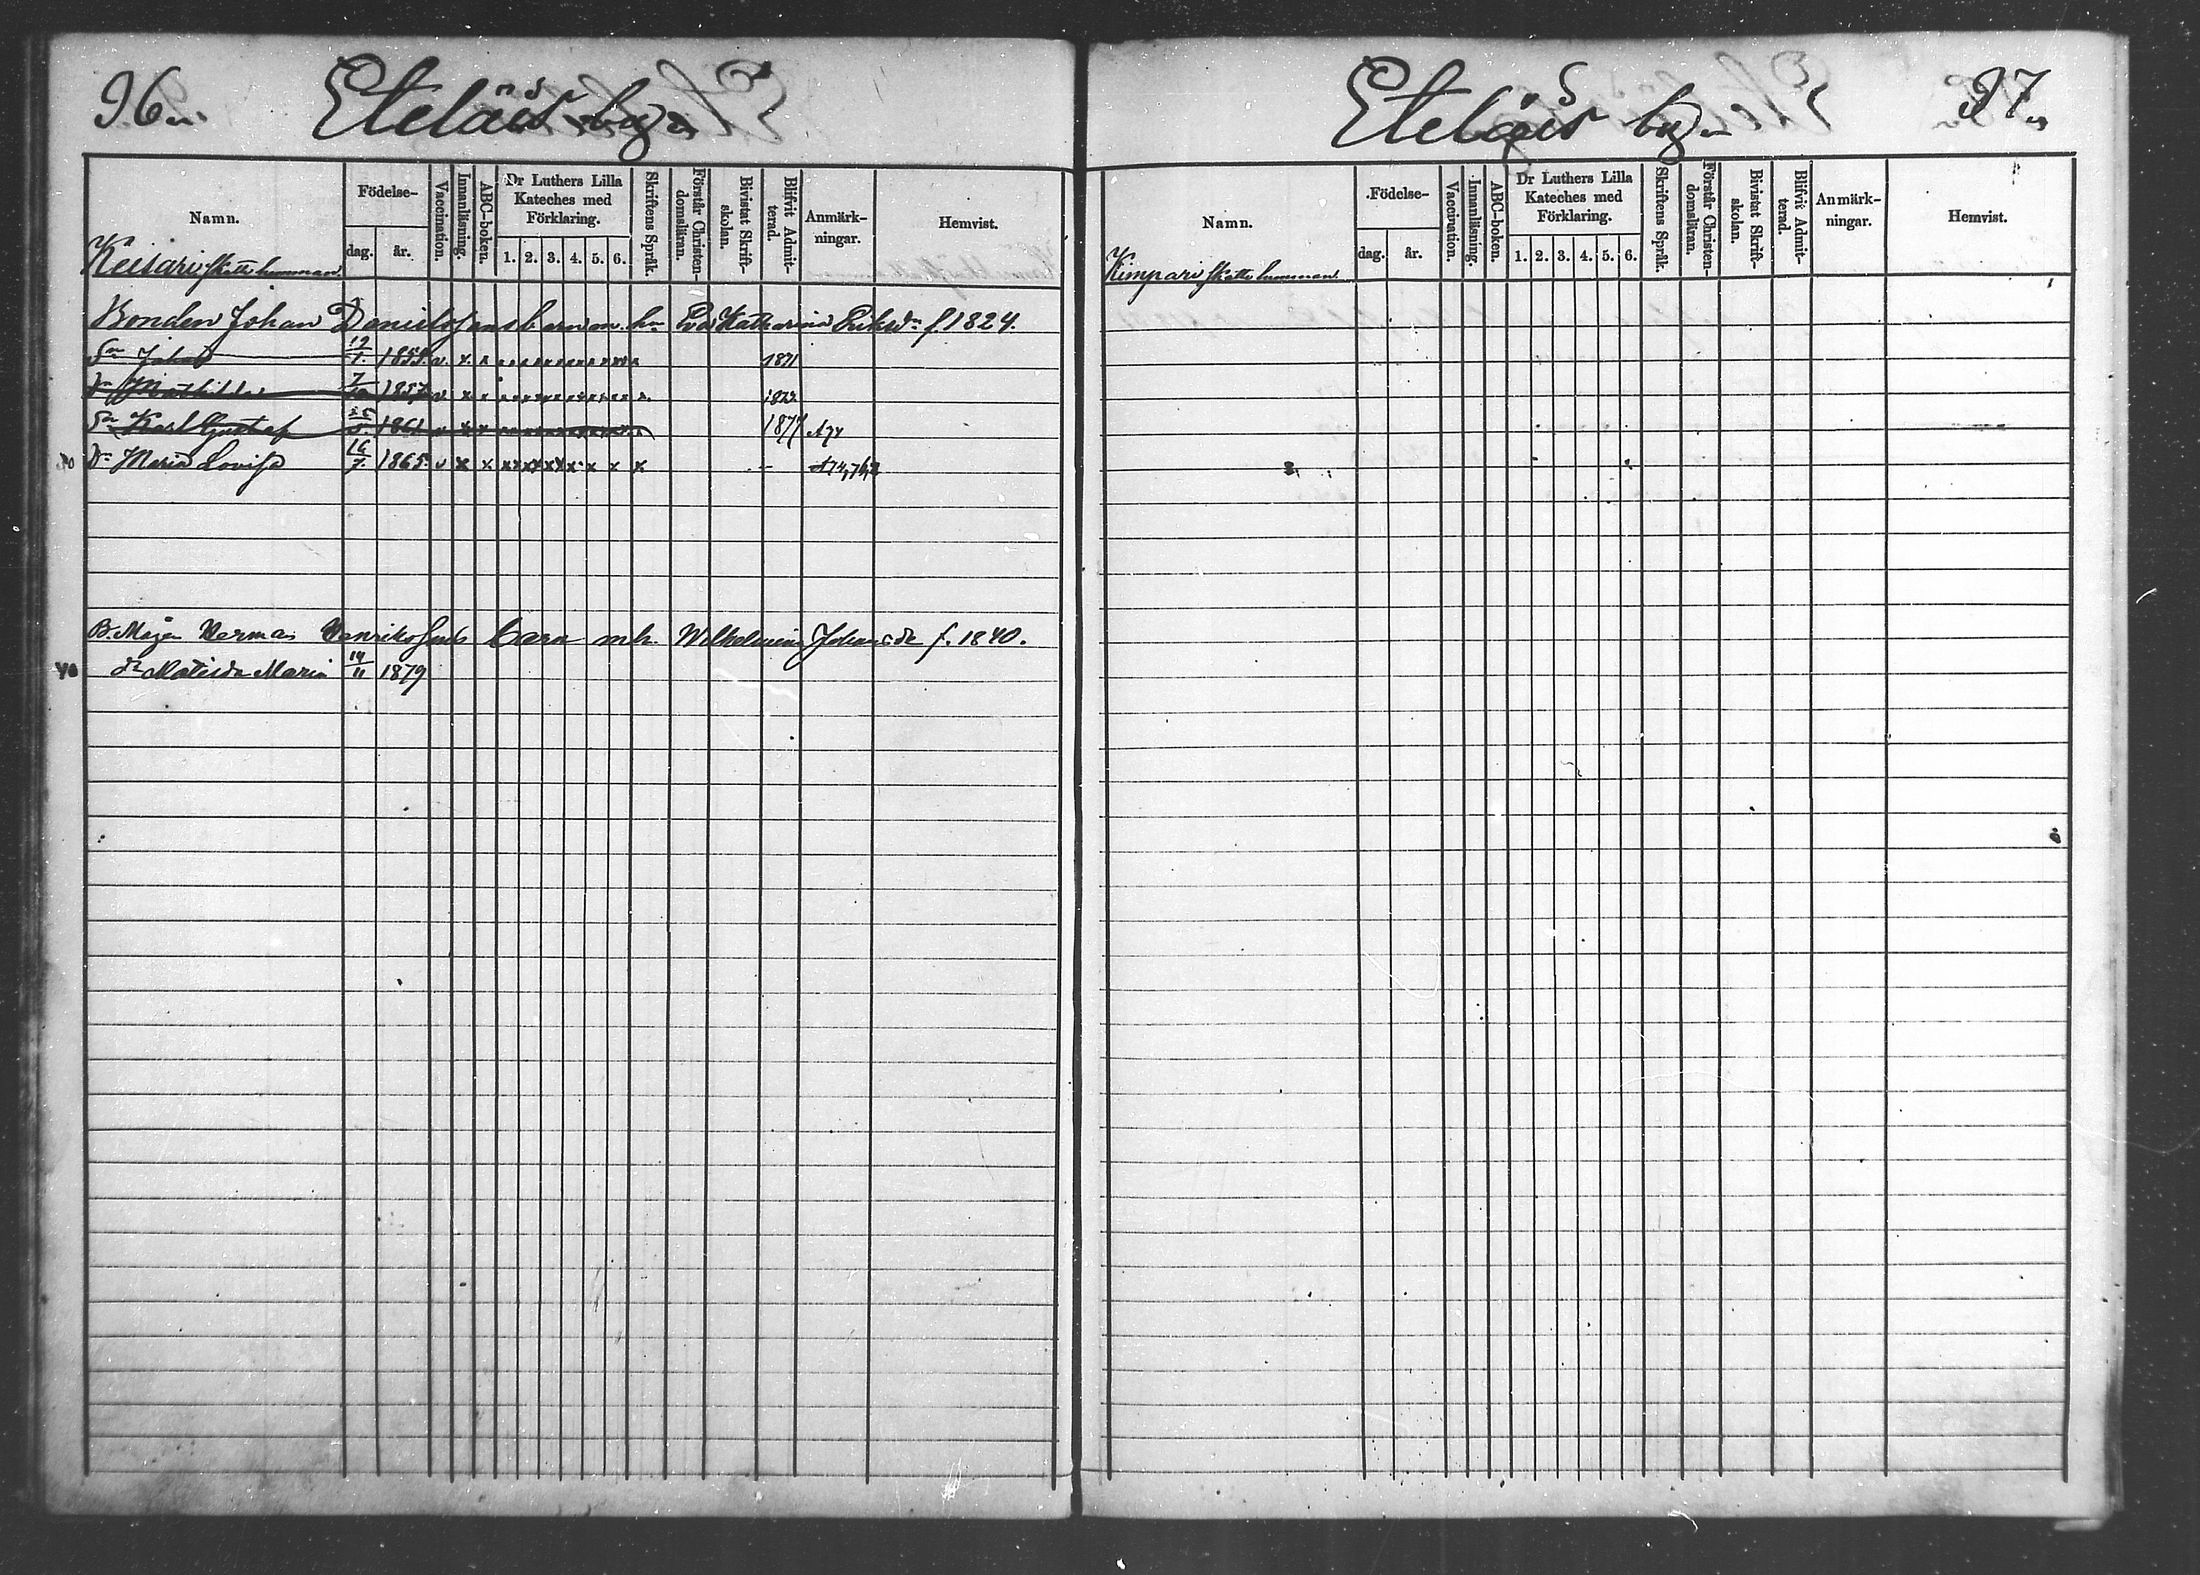 96.
Eteläis by.
Namn.
Födelse-
dag.
år.
Vaccination.
Innanläsning.
ABC-boken.
Dr Luthers Lilla
Kateches med
Förklaring.
1. 2. 3. 4. 5. 6.
Skriftens Språk.
Förstår Christen-
domsläran.
Bivistat Skrift-
skolan.
Blifvit Admit-
terad.
Anmärk-
ningar.
Hemvist.
Keisari skatte hemman
Bonden Johan Danielssons barn m. h. Eva Katharina Eriksdr f 1824.
Sn Johan 19/1. 1855. v. x. 1871
Dr Mathilda 7/10 1857 v x 1872
Sn Karl Gustaf 25/5. 1861 v x x 1877
Dr Maria Lovisa 16/7. 1865. v x x x x x x x x x x x
B. Mågen Herman Henrikssons barn m h. Wilhelmina Johansdr f. 1840.
40 dr Matilda Maria 14/11 1879
97.
Eteläis by.
Namn.
Födelse-
dag.
år.
Vaccination.
Innanläsning.
ABC-boken.
Dr Luthers Lilla
Kateches med
Förklaring.
1. 2. 3. 4. 5. 6.
Skriftens Språk.
Förstår Christen-
domsläran.
Bivistat Skrift-
skolan.
Blifvit Admit-
terad.
Anmärk-
ningar.
Hemvist.
Kimpari skatte hemman.